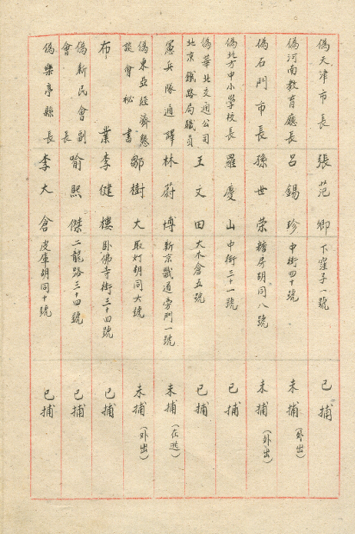 偽天津市長 張范卿 下窪子一號 已捕
偽河南教育廳長 呂錫珍 中街四十號 未捕(外出)
偽石門市長 孫世榮 糖房胡同八號 未捕(外出)
偽北方中小學校長 羅慶山 中街三十一號 已捕
偽華北交通公司北京鐵路局職員 王文田 大木倉五號 已捕
憲兵隊通譯 林蔚博 新京畿道旁門一號 未捕(在逃)
偽東亞經濟懇談會秘書 鄒樹大 取灯胡同六號 未捕(外出)
布業 李健樓 臥佛寺街三十四號 已捕
偽新民會副會長 喻熙傑 二龍路三十四號 已捕
偽樂亭縣長 李大倉 皮庫胡同十號 已捕